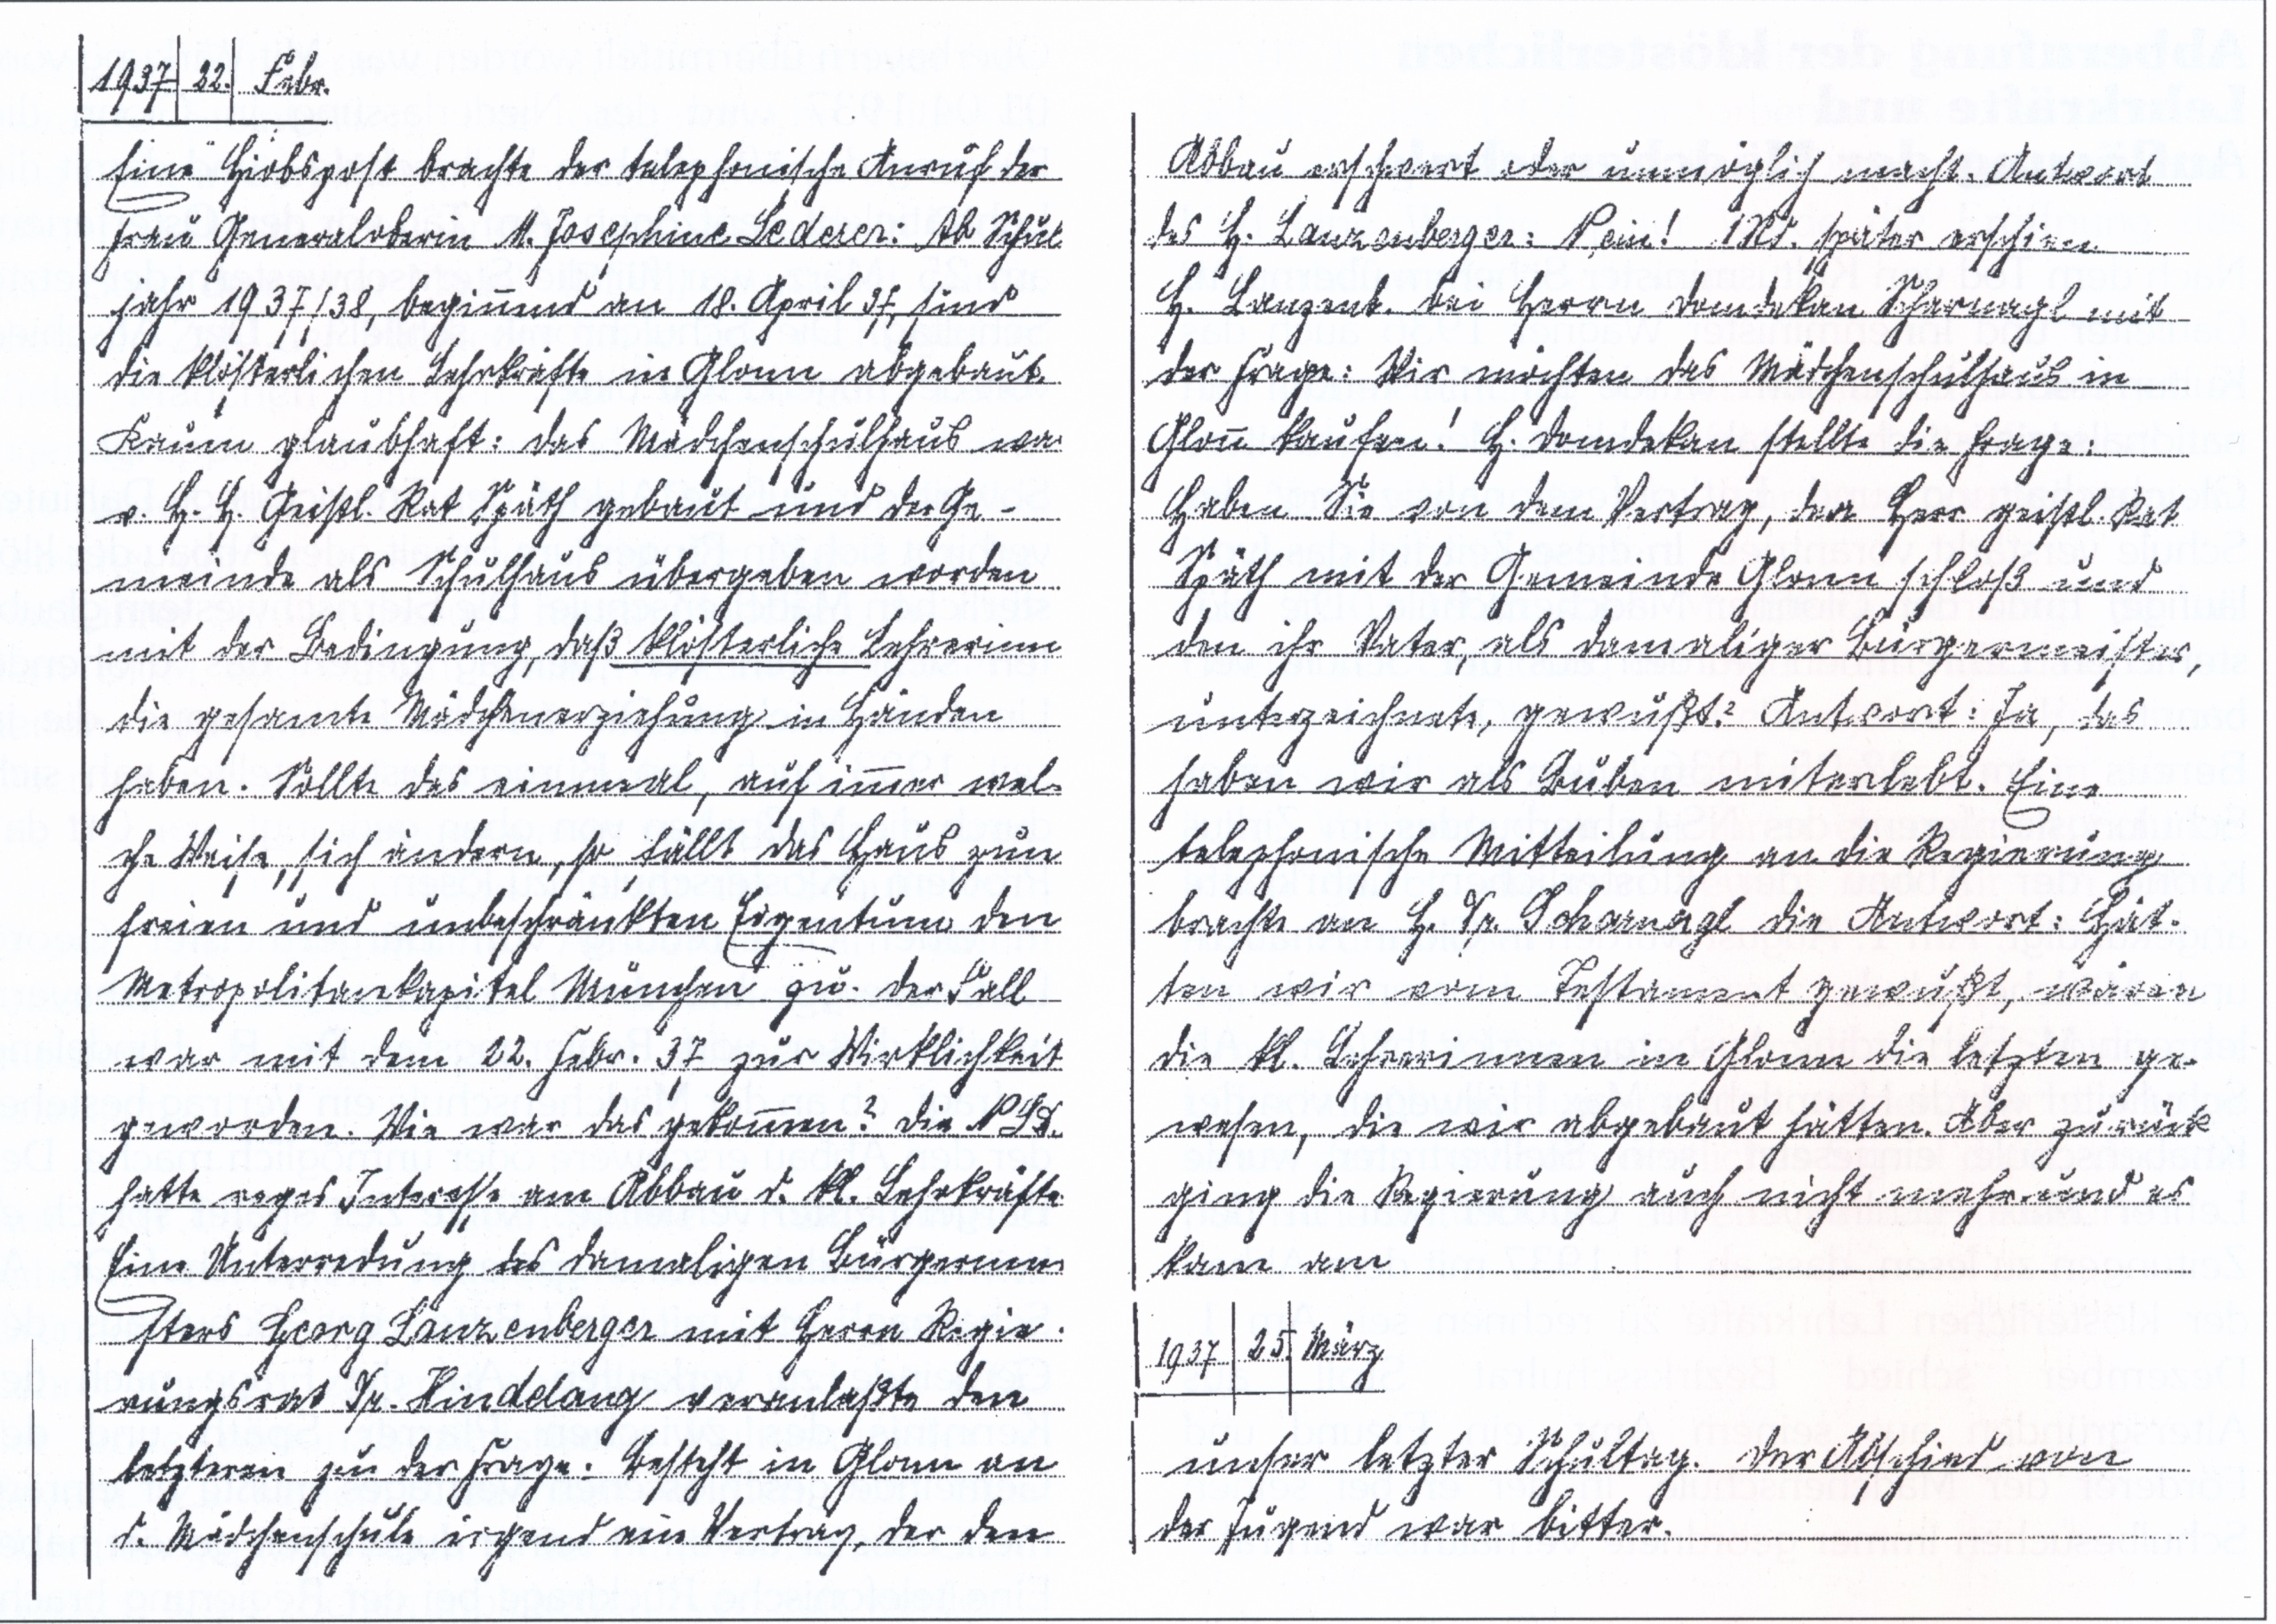 1937 22. Febr.
Eine Hiobspost brachte der telephonische Anruf der
Frau Generaloberin M. Josephine Lederer: Ab Schul
jahr 1937/38, beginnend am 18. April 37, sind
die klösterlichen Lehrkräfte in Glonn abgebaut.
Kaum glaubhaft: das Mädchenschulhaus war
v. H. H. Geistl. Rat Späth gebaut und der Ge-
meinde als Schulhaus übergeben worden
mit der Bedingung, daß klösterliche Lehrerinn
die gesamte Mädchenerziehung in Händen
haben. Sollte das einmal, auf im̅er wel-
che Weise, sich ändern, so fällt das Haus zum
freien und unbeschränkten Eigentum dem
Metropolitankapitel München zu. Der Fall
war mit dem 22. Febr. 37 zur Wirklichkeit
geworden. Wie war das gekom̅en? Die
hatte reges Interesse am Abbau d. kl. Lehrkräfte.
Eine Unterredung des damaligen Bürgermei
sters Georg Lanzenberger mit Herrn Regie-
rungsrat Dr. Hindelang veranlaßte den
letzteren zu der Frage: Besteht in Glonn an
d. Mädchenschule irgend ein Vertrag, der den
Abbau erschwert oder unmöglich macht. Antwort
des H. Lanzenberger: Nein! 1 Std. später erschien
H. Lanzenb. bei Herrn Domdekan Scharnagl mit
der Frage: Wir möchten das Mädchenschulhaus in
Glon̅ kaufen! H. Domdekan stellte die Frage:
Haben Sie von dem Vertrag, den Herr geistl. Rat
Späth mit der Gemeinde Glonn schloß und
den ihr Vater, als damaliger Bürgermeister,
unterzeichnete, gewußt? Antwort: Ja, das
haben wir als Buben miterlebt. Eine
telephonische Mitteilung an die Regierung
brachte an H. Dr. Scharnagl die Antwort: Hät-
ten wir vom Testament gewußt, wären
die kl. Lehrerinnen in Glonn die letzten ge-
wesen, die wir abgebaut hätten. Aber zurück
ging die Regierung auch nicht mehr und es
kam am
1937 25. März
unser letzter Schultag. Der Abschied von
der Jugend war bitter.